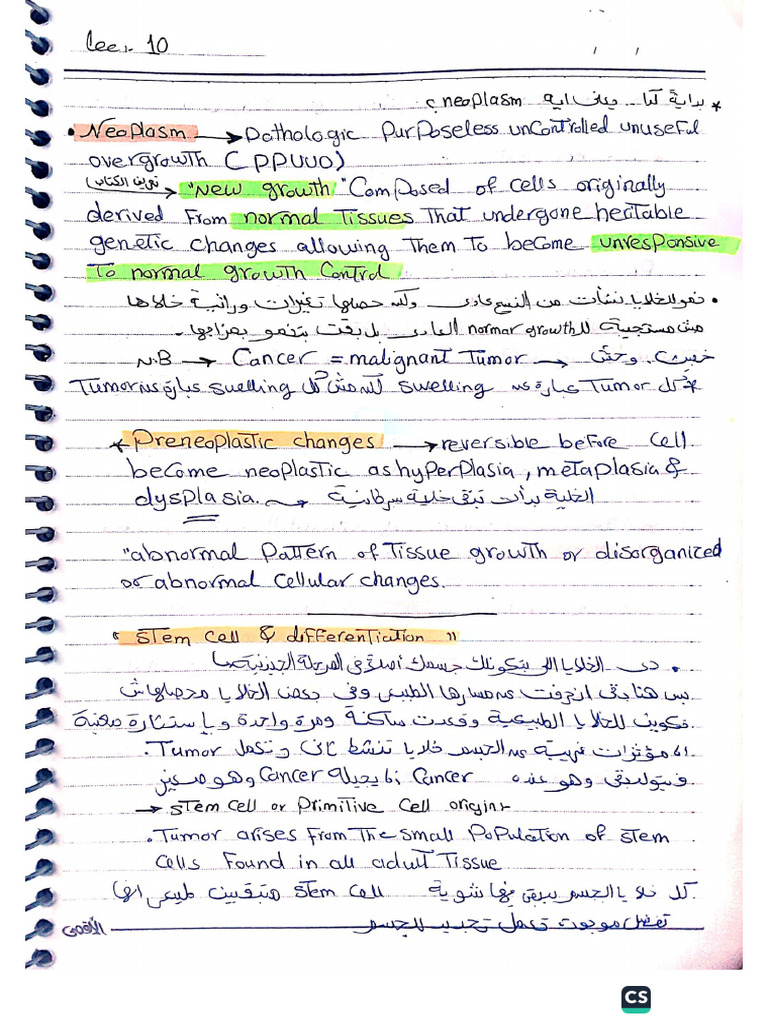 Lec. 10
* بداية كدا... يعني ايه neoplasm ؟
• Neoplasm → Pathologic Purposeless uncontrolled unuseful
overgrowth (PPUUO)
(تعريف الكتاب) → "New growth" Composed of cells originally
derived From normal Tissues That undergone heritable
genetic changes allowing Them To become unresponsive
To normal growth Control
• نمو للخلايا نشأت من النسيج عادى ولكن حصلها تغيرات وراثية خلاها
مش مستجيبة لل normal growth العادى بل بقت بتنمو بمزاجها.
N.B → Cancer = malignant Tumor → خبيث وحش
كل Tumor عبارة عن swelling لكن مش كل swelling عبارة عن Tumor
* Preneoplastic changes → reversible before cell
become neoplastic as hyperplasia, metaplasia &
dysplasia. → الخلية بدأت تبقى خلية سرطانية
"abnormal Pattern of Tissue growth or disorganized
or abnormal cellular changes.
" Stem cell & differentiation "
• دى الخلايا اللى بتكونلك جسمك أصلا فى المرحلة الجنينية
بس هنا بقى انحرفت عن مسارها الطبيعى وفى بعض الخلايا محصلهاش
تكوين للخلايا الطبيعية وقعدت ساكنة ومرة واحدة وبإستثارة معينة
او مؤثرات غريبة عن الجسم خلايا تنشط تانى وتكمل Tumor.
وهو عنده Cancer يجيله Cancer وهو
→ Stem cell or Primitive Cell origin
• Tumor arises From The small Population of stem
cells Found in all adult Tissue
كل خلايا الجسم بيبقى فيها شوية stem cell هتبقين طبيعى انها
تفضل موجودة تعمل تجديد للجسم
الأقصى
CS